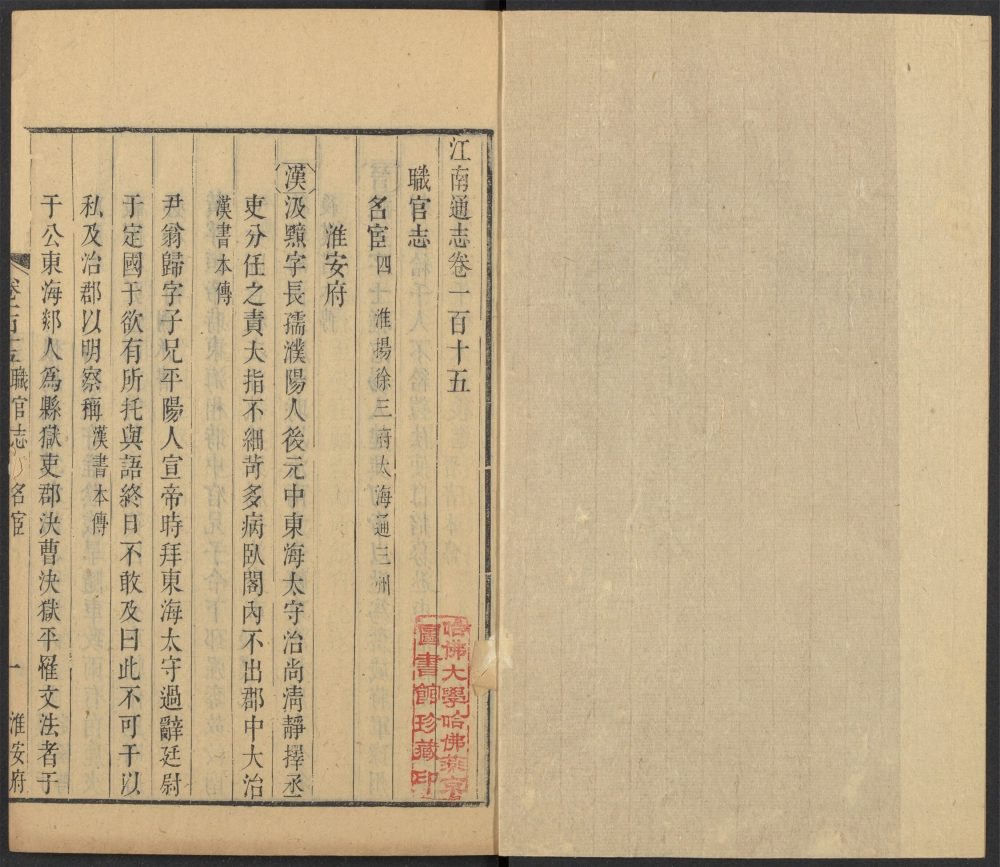 江南通志卷一百十五
職官志
名宦四 淮揚徐三府太海通三州
淮安府
漢汲黯字長孺濮陽人後元中東海太守治尚清靜擇丞
吏分任之責大指不細苛多病臥閣內不出郡中大治
漢書本傳
尹翁歸字子兄平陽人宣帝時拜東海太守過辭廷尉
于定國于欲有所托與語終日不敢及曰此不可干以
私及治郡以明察稱漢書本傳
于公東海郯人為縣獄吏郡決曹決獄平罹文法者于
卷一百十五 職官志 名宦 一 淮安府
哈佛大學哈佛燕京
圖書館珍藏印